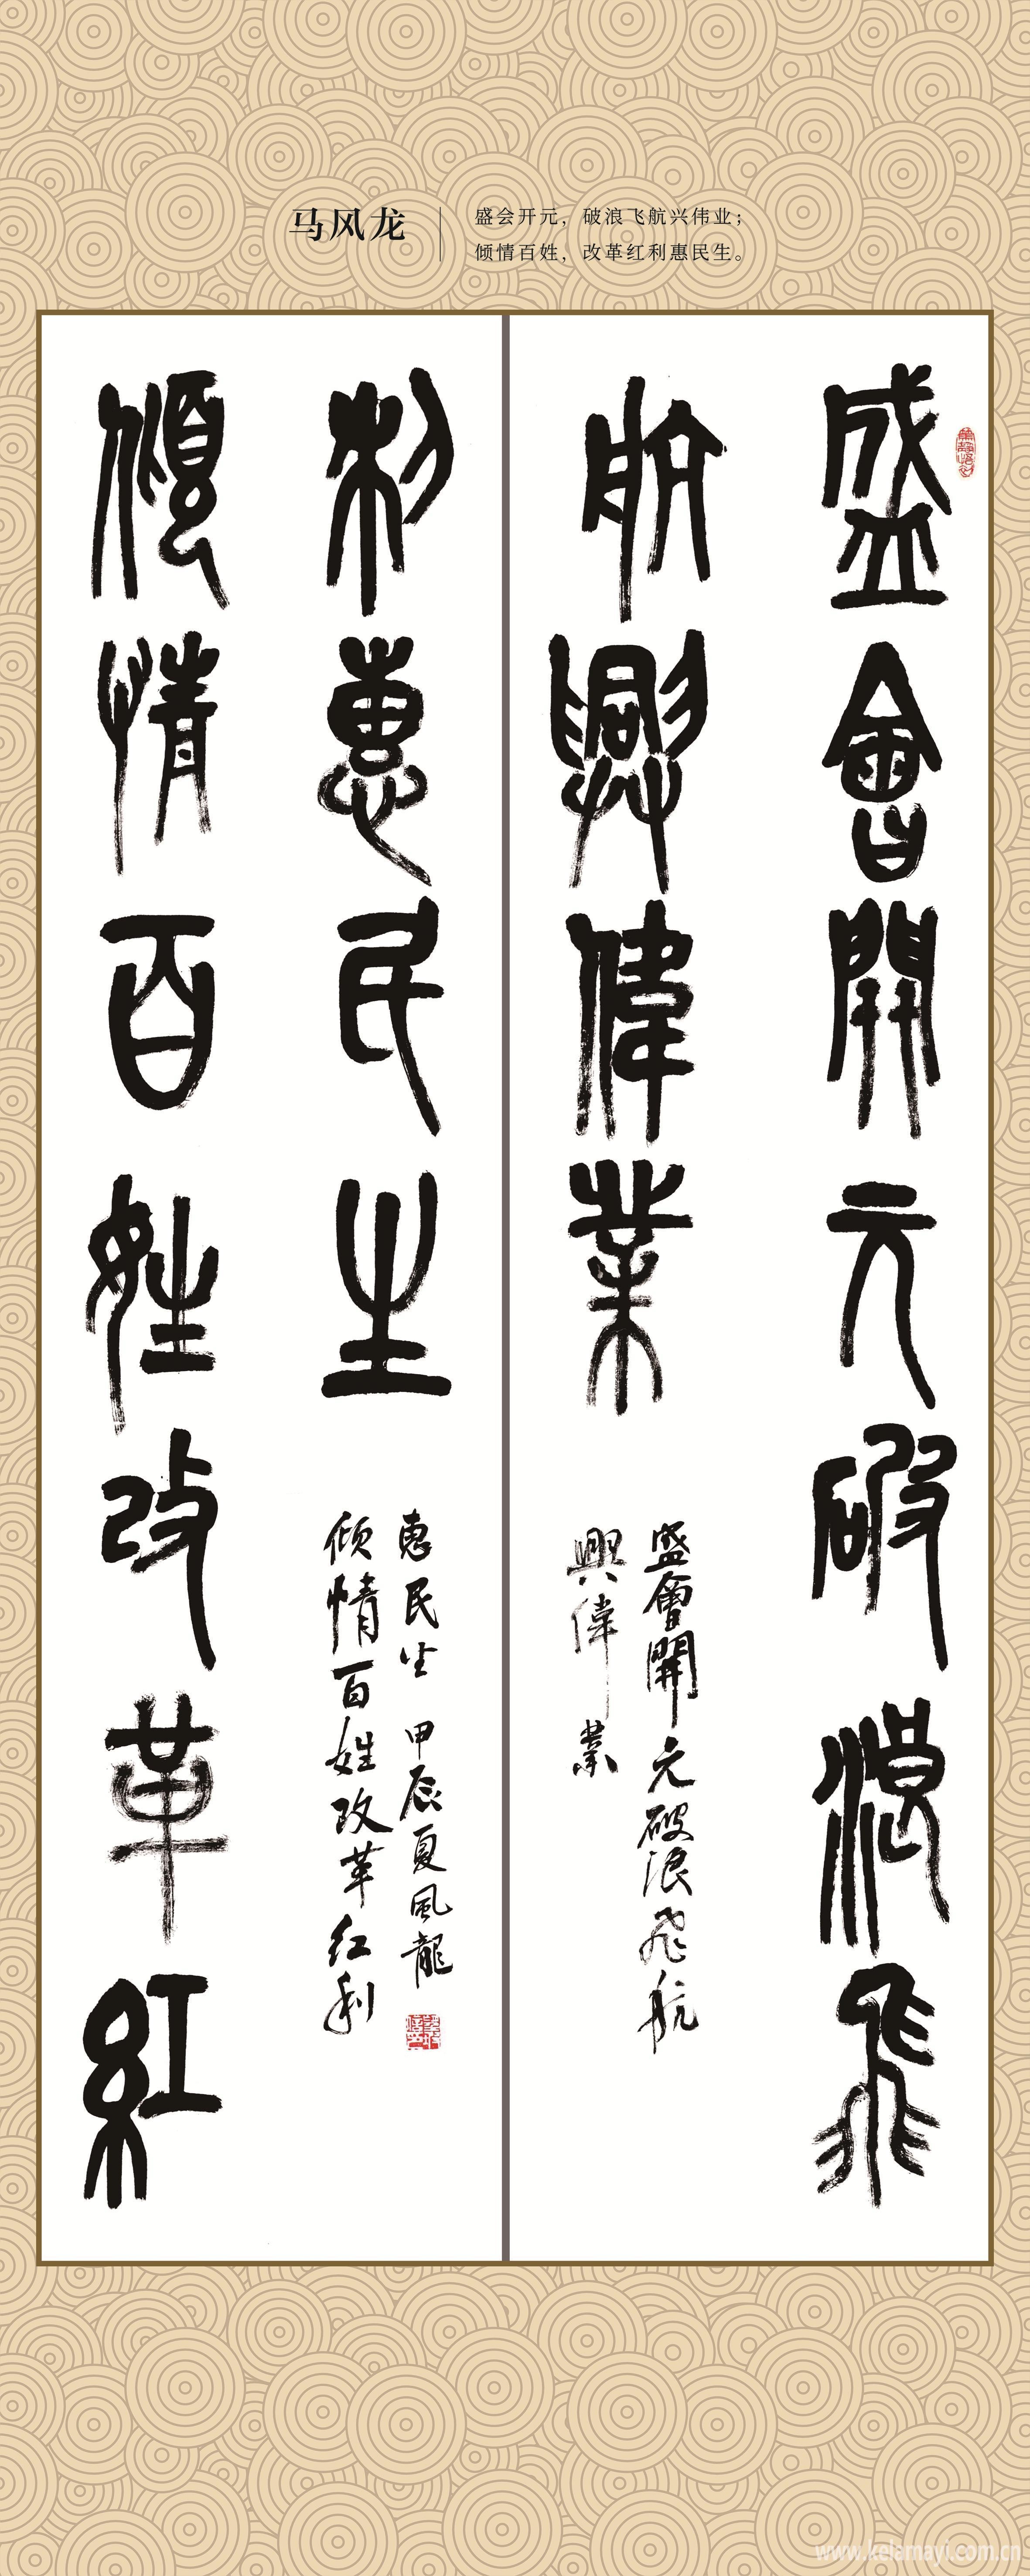 马风龙
盛会开元，破浪飞航兴伟业；
倾情百姓，改革红利惠民生。
盛會開元破浪飛
航興偉業
盛會開元破浪飛航
興偉業
傾情百姓改革紅
利惠民生
惠民生 甲辰夏風龍
倾情百姓改革红利
www.kelamayi.com.cn